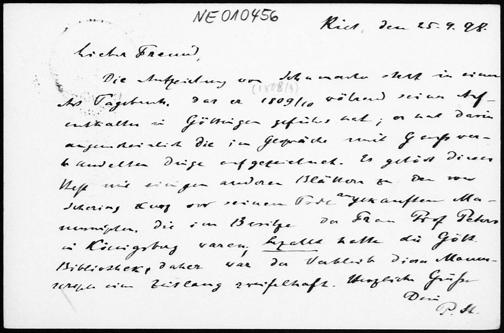 NE010456
Kiel, den 25.9.98.
Lieber Freund,
Die Aufzeichnung von Schumacher steht in einem
Art Tagebuch, das er 1809/10 während seines Auf-
(1808/9)
enthaltes in Göttingen geführt hat; er hat darin
augenscheinlich die im Gespräche mit Gauss ver-
handelten Dinge aufgezeichnet. Es gehört dieses
Heft mit einigen anderen Blättern zu den von
Schering kurz vor seinem Tode angekauften Ma-
nuscripten, die im Besitze der Frau Prof Peters
in Königsberg waren, bezahlt hatte die Gött.
Bibliothek, daher war der Verbleib dieser Manu-
scripte eine Zeitlang zweifelhaft. Herzliche Grüße
Dein
P. St.